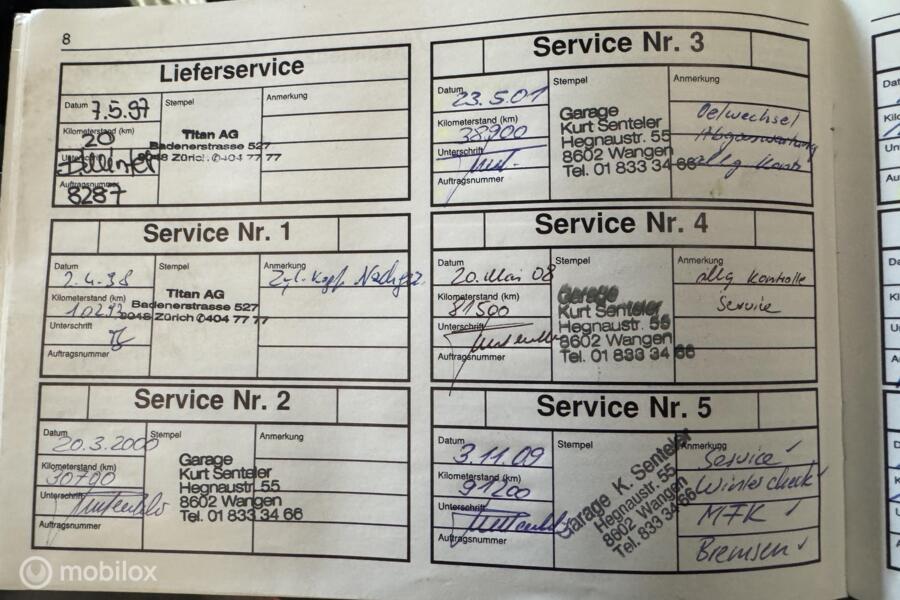 8
Lieferservice
Datum 7.5.97
Stempel
Anmerkung
Kilometerstand (km)
20
Unterschrift
Auftragsnummer
8287
Titan AG
Badenerstrasse 527
8048 Zürich ✆404 77 77
Service Nr. 1
Datum
2.4.98
Stempel
Anmerkung
Zyl. Kopf Nachgez.
Kilometerstand (km)
10292
Unterschrift
Auftragsnummer
Titan AG
Badenerstrasse 527
8048 Zürich ✆404 77 77
Service Nr. 2
Datum
20.3.2000
Stempel
Anmerkung
Kilometerstand (km)
30700
Unterschrift
Auftragsnummer
Garage
Kurt Senteler
Hegnaustr. 55
8602 Wangen
Tel. 01 833 34 66
Service Nr. 3
Datum
23.5.01
Stempel
Anmerkung
Oelwechsel
Abgaswartung
allg Kontr.
Kilometerstand (km)
38900
Unterschrift
Auftragsnummer
Garage
Kurt Senteler
Hegnaustr. 55
8602 Wangen
Tel. 01 833 34 66
Service Nr. 4
Datum
20. Mai 08
Stempel
Anmerkung
allg Kontrolle
Service
Kilometerstand (km)
81500
Unterschrift
Auftragsnummer
Garage
Kurt Senteler
Hegnaustr. 55
8602 Wangen
Tel. 01 833 34 66
Service Nr. 5
Datum
3.11.09
Stempel
Anmerkung
Service ✓
Wintercheck ✓
MFK ✓
Bremsen ✓
Kilometerstand (km)
91200
Unterschrift
Auftragsnummer
Garage K. Senteler
Hegnaustr. 55
8602 Wangen
Tel. 833 34 66
mobilox